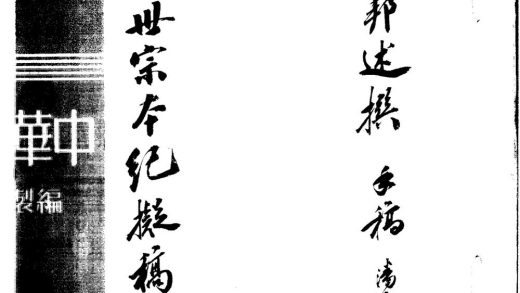 邦述撰 手稿
世宗本紀擬稿
中華
編製